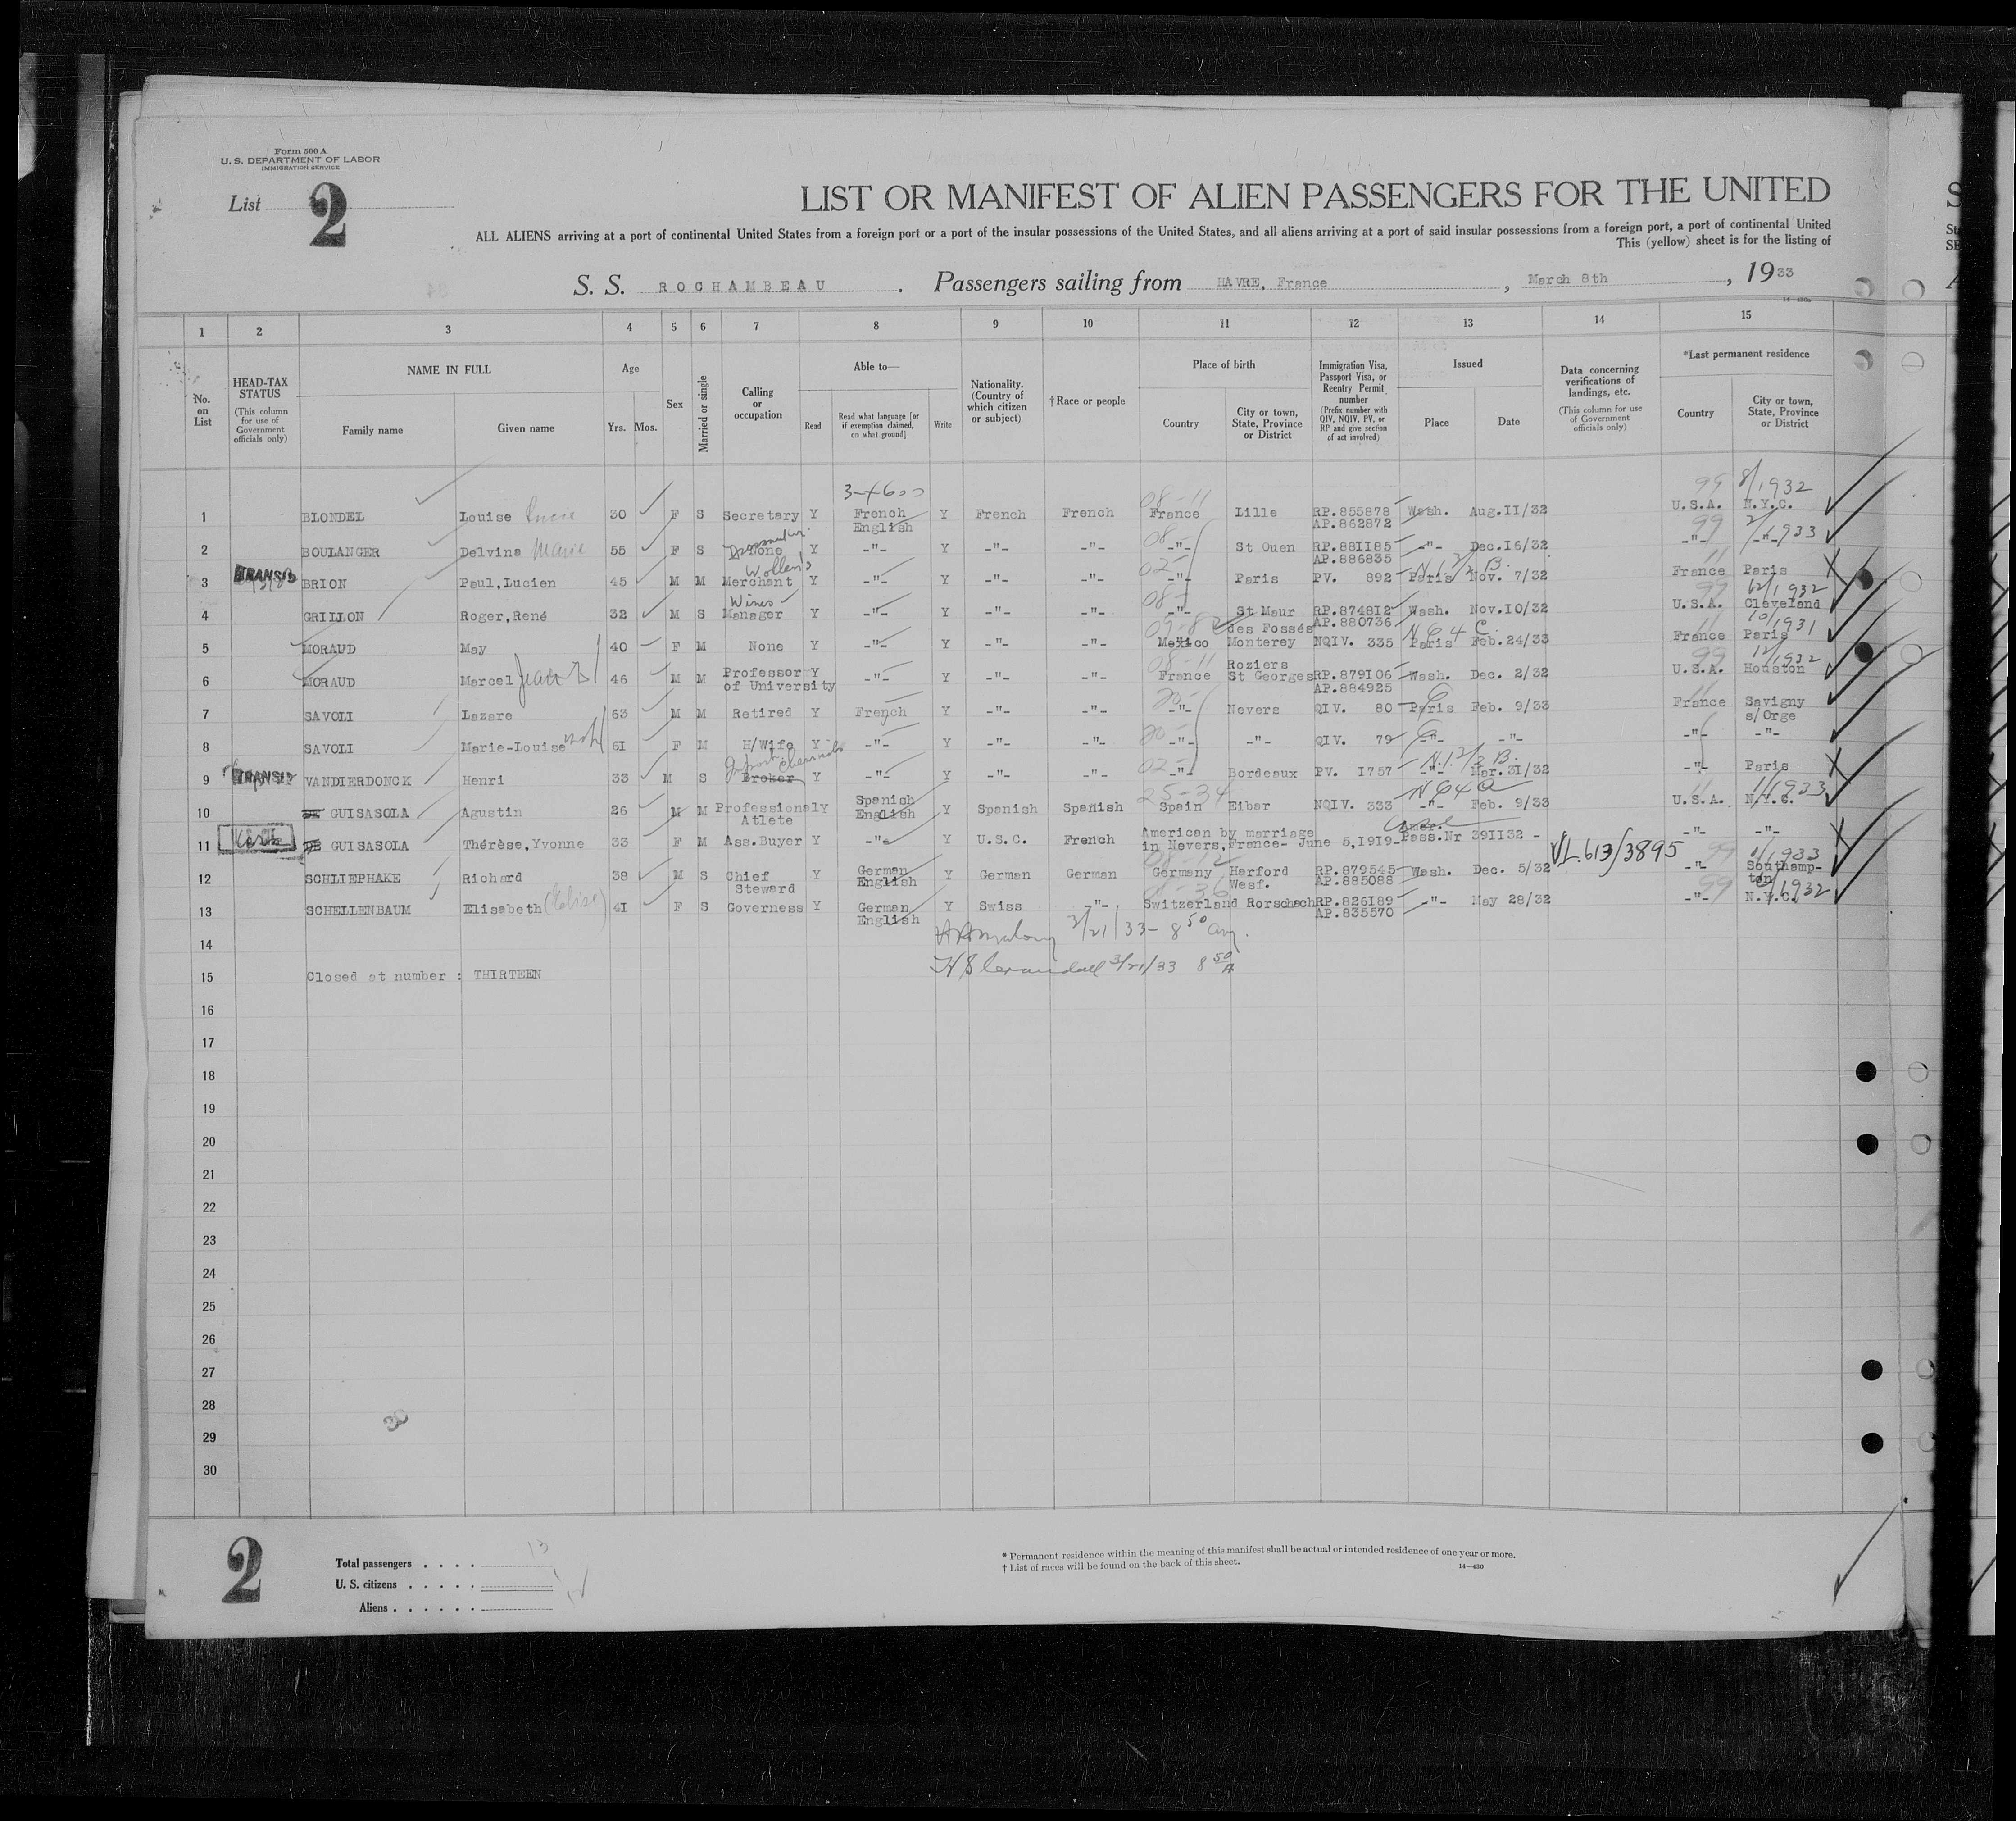 Form 500 A
U. S. DEPARTMENT OF LABOR
IMMIGRATION SERVICE
List 2
LIST OR MANIFEST OF ALIEN PASSENGERS FOR THE UNITED
ALL ALIENS arriving at a port of continental United States from a foreign port or a port of the insular possessions of the United States, and all aliens arriving at a port of said insular possessions from a foreign port, a port of continental United
This (yellow) sheet is for the listing of
S. S. ROCHAMBEAU. Passengers sailing from HAVRE, France, March 8th, 1933
1 2 3 4 5 6 7 8 9 10 11 12 13 14 15
No. on List
HEAD-TAX STATUS (This column for use of Government officials only)
NAME IN FULL Family name Given name
Age Yrs. Mos.
Sex
Married or single
Calling or occupation
Able to— Read Read what language [or if exemption claimed, on what ground] Write
Nationality. (Country of which citizen or subject)
†Race or people
Place of birth Country City or town, State, Province or District
Immigration Visa, Passport Visa, or Reentry Permit number (Prefix number with QIV, NQIV, PV, or RP and give section of act involved)
Issued Place Date
Data concerning verifications of landings, etc. (This column for use of Government officials only)
*Last permanent residence Country City or town, State, Province or District
3-4600 08-11 99 8/1932
1 BLONDEL Louise 30 F S Secretary Y French English Y French French France Lille RP.855878 AP.862872 Wash. Aug.11/32 U.S.A. N.Y.C.
2 BOULANGER Delvina Marie 55 F S None Y -"- Y -"- -"- 08- -"- St Ouen RP.881185 AP.886835 -"- Dec.16/32 99 -"- 2/1933 -"-
3 TRANSIT BRION Paul,Lucien 45 M M Wollens Merchant Y -"- Y -"- -"- 02- -"- Paris PV. 892 Paris Nov. 7/32 11 France Paris
4 GRILLON Roger,René 32 M S Wines Manager Y -"- Y -"- -"- 08- -"- St Maur des Fossés RP.874812 AP.880736 Wash. Nov.10/32 99 U.S.A. 12/1932 Cleveland
5 MORAUD May 40 F M None Y -"- Y -"- -"- Mexico Monterey NQIV. 335 Paris Feb.24/33 11 France 10/1931 Paris
6 MORAUD Marcel Jean B 46 M M Professor of University Y -"- Y -"- -"- 08-11 France Roziers St Georges RP.879106 AP.884925 Wash. Dec. 2/32 99 U.S.A. 12/1932 Houston
7 SAVOLI Lazare 63 M M Retired Y French Y -"- -"- 20- -"- Nevers QIV. 80 Paris Feb. 9/33 11 France Savigny s/Orge
8 SAVOLI Marie-Louise 61 F M H/Wife Y -"- Y -"- -"- 20- -"- -"- QIV. 79 -"- -"- -"- -"-
9 TRANSIT VANDIERDONCK Henri 33 M S Broker Y -"- Y -"- -"- 02- -"- Bordeaux PV. 1757 -"- Mar.31/32 -"- Paris
10 GUISASOLA Agustin 26 M M Professional Atlete Y Spanish English Y Spanish Spanish 25-34 Spain Eibar NQIV. 333 -"- Feb. 9/33 11 U.S.A. 11/1933 N.Y.C.
11 GUISASOLA Thérèse,Yvonne 33 F M Ass.Buyer Y -"- Y U.S.C. French American by marriage in Nevers,France- June 5,1919- Pass.Nr 391132 - -"- -"-
VL 613/3895
12 SCHLIEPHAKE Richard 38 M S Chief Steward Y German English Y German German 08-12 Germany Harford Wesf. RP.879545 AP.885088 Wash. Dec. 5/32 99 -"- 1/1933 Southampton
13 SCHELLENBAUM Elisabeth (Elise) 41 F S Governess Y German English Y Swiss -"- Switzerland Rorschach RP.826189 AP.835570 -"- May 28/32 99 -"- N.Y.C.
14 3/21/33- 8 50 am.
15 Closed at number : THIRTEEN 3/21/33 8 50 A
16
17
18
19
20
21
22
23
24
25
26
27
28
29
30
30
2
Total passengers . . . . 13
U. S. citizens . . . . .
Aliens . . . . . .
* Permanent residence within the meaning of this manifest shall be actual or intended residence of one year or more.
† List of races will be found on the back of this sheet.
14—430